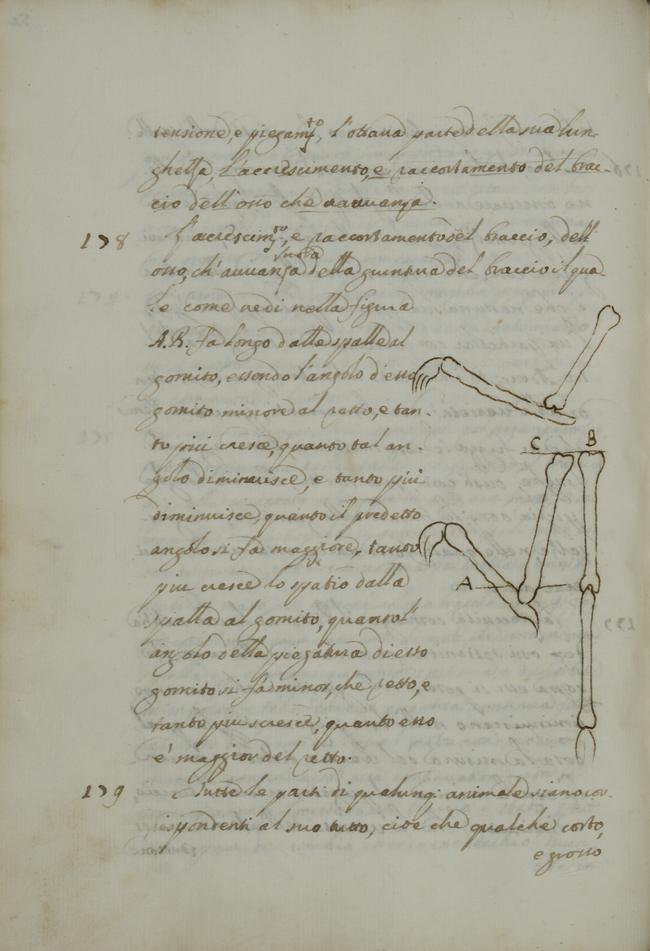 tensione, e piegamto, l'ottava parte della sua lun-
ghezza, l'accrescimento, e raccortamento del brac-
cio dell'osso che s'avvanza.
178 L'acrescimto, e raccortamento del braccio, dell'
osso, ch'avvanza della giuntura del braccio il qua-
le come vedi nella figura
A.B. fa longo dalle spalle al
gomito, essendo l'angolo d'esso
gomito minore al retto, e tan-
to più cresce, quanto tal an-
golo diminuisce, e tanto più
diminuisce, quanto il predetto
angolo si fa maggiore, tanto
più cresce lo spatio dalla
spalla al gomito, quanto l'
angolo della piegatura di esso
gomito si fa minor, che retto, e
tanto più scresce, quanto esso
è maggior del retto.
C B
A
179 Tutte le parti di qualunq: animale siano cor-
rispondenti al suo tutto, cioè che qualche corto,
e grosso